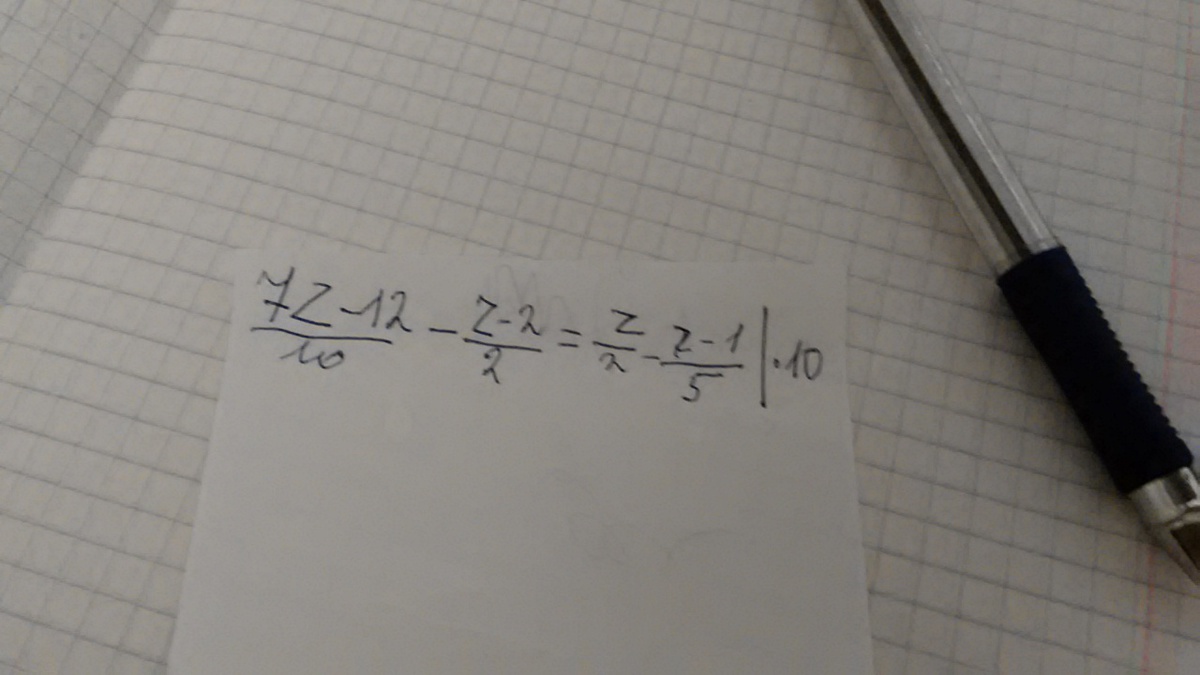 7z-12/10 - z-2/2 = z/2 - z-1/5 |·10